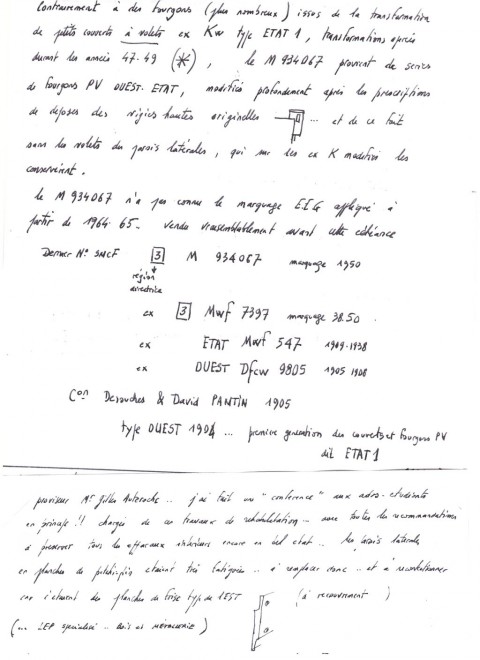 Contrairement à des fourgons (plus nombreux) issus de la transformation
de petits couverts à volets ex Kw type ETAT 1, transformations opérées
durant les années 47-49 (*), le M 934067 provient de series
de fourgons PV OUEST-ETAT, modifiés profondement après les prescriptions
de déposes des vigies hautes originelles ... et de ce fait
sans les volets de parois latérales, qui sur les ex K modifiés les
conservèrent.
le M 934067 n'a pas connu le marquage E.I.G appliqué à
partir de 1964-65 - vendu vraisemblablement avant cette échéance
Dernier N° SNCF 3 M 934067 marquage 1950
région
directrice
ex 3 Mwf 7397 marquage 38.50
ex ETAT Mwf 547 1909-1938
ex OUEST Dfcw 9805 1905 1908
Con Desouches & David PANTIN 1905
type OUEST 1904 ... premiere generation des couverts et fourgons PV
dit ETAT 1
proviseur Mr Gilles .. j'ai fait un "conférence" aux ados-etudiants
en principe !! chargés de ces travaux de rehabilitation .. avec toutes les recommandations
à préserver tous les interieurs encore en bel état .. les parois laterales
en planches de pitchpin etaient très fatiguées .. à remplacer donc .. et à
car c'étaient des planches de frise type de l'EST (à recouvrement)
(un LEP specialisé .. bois et METALLERIE)